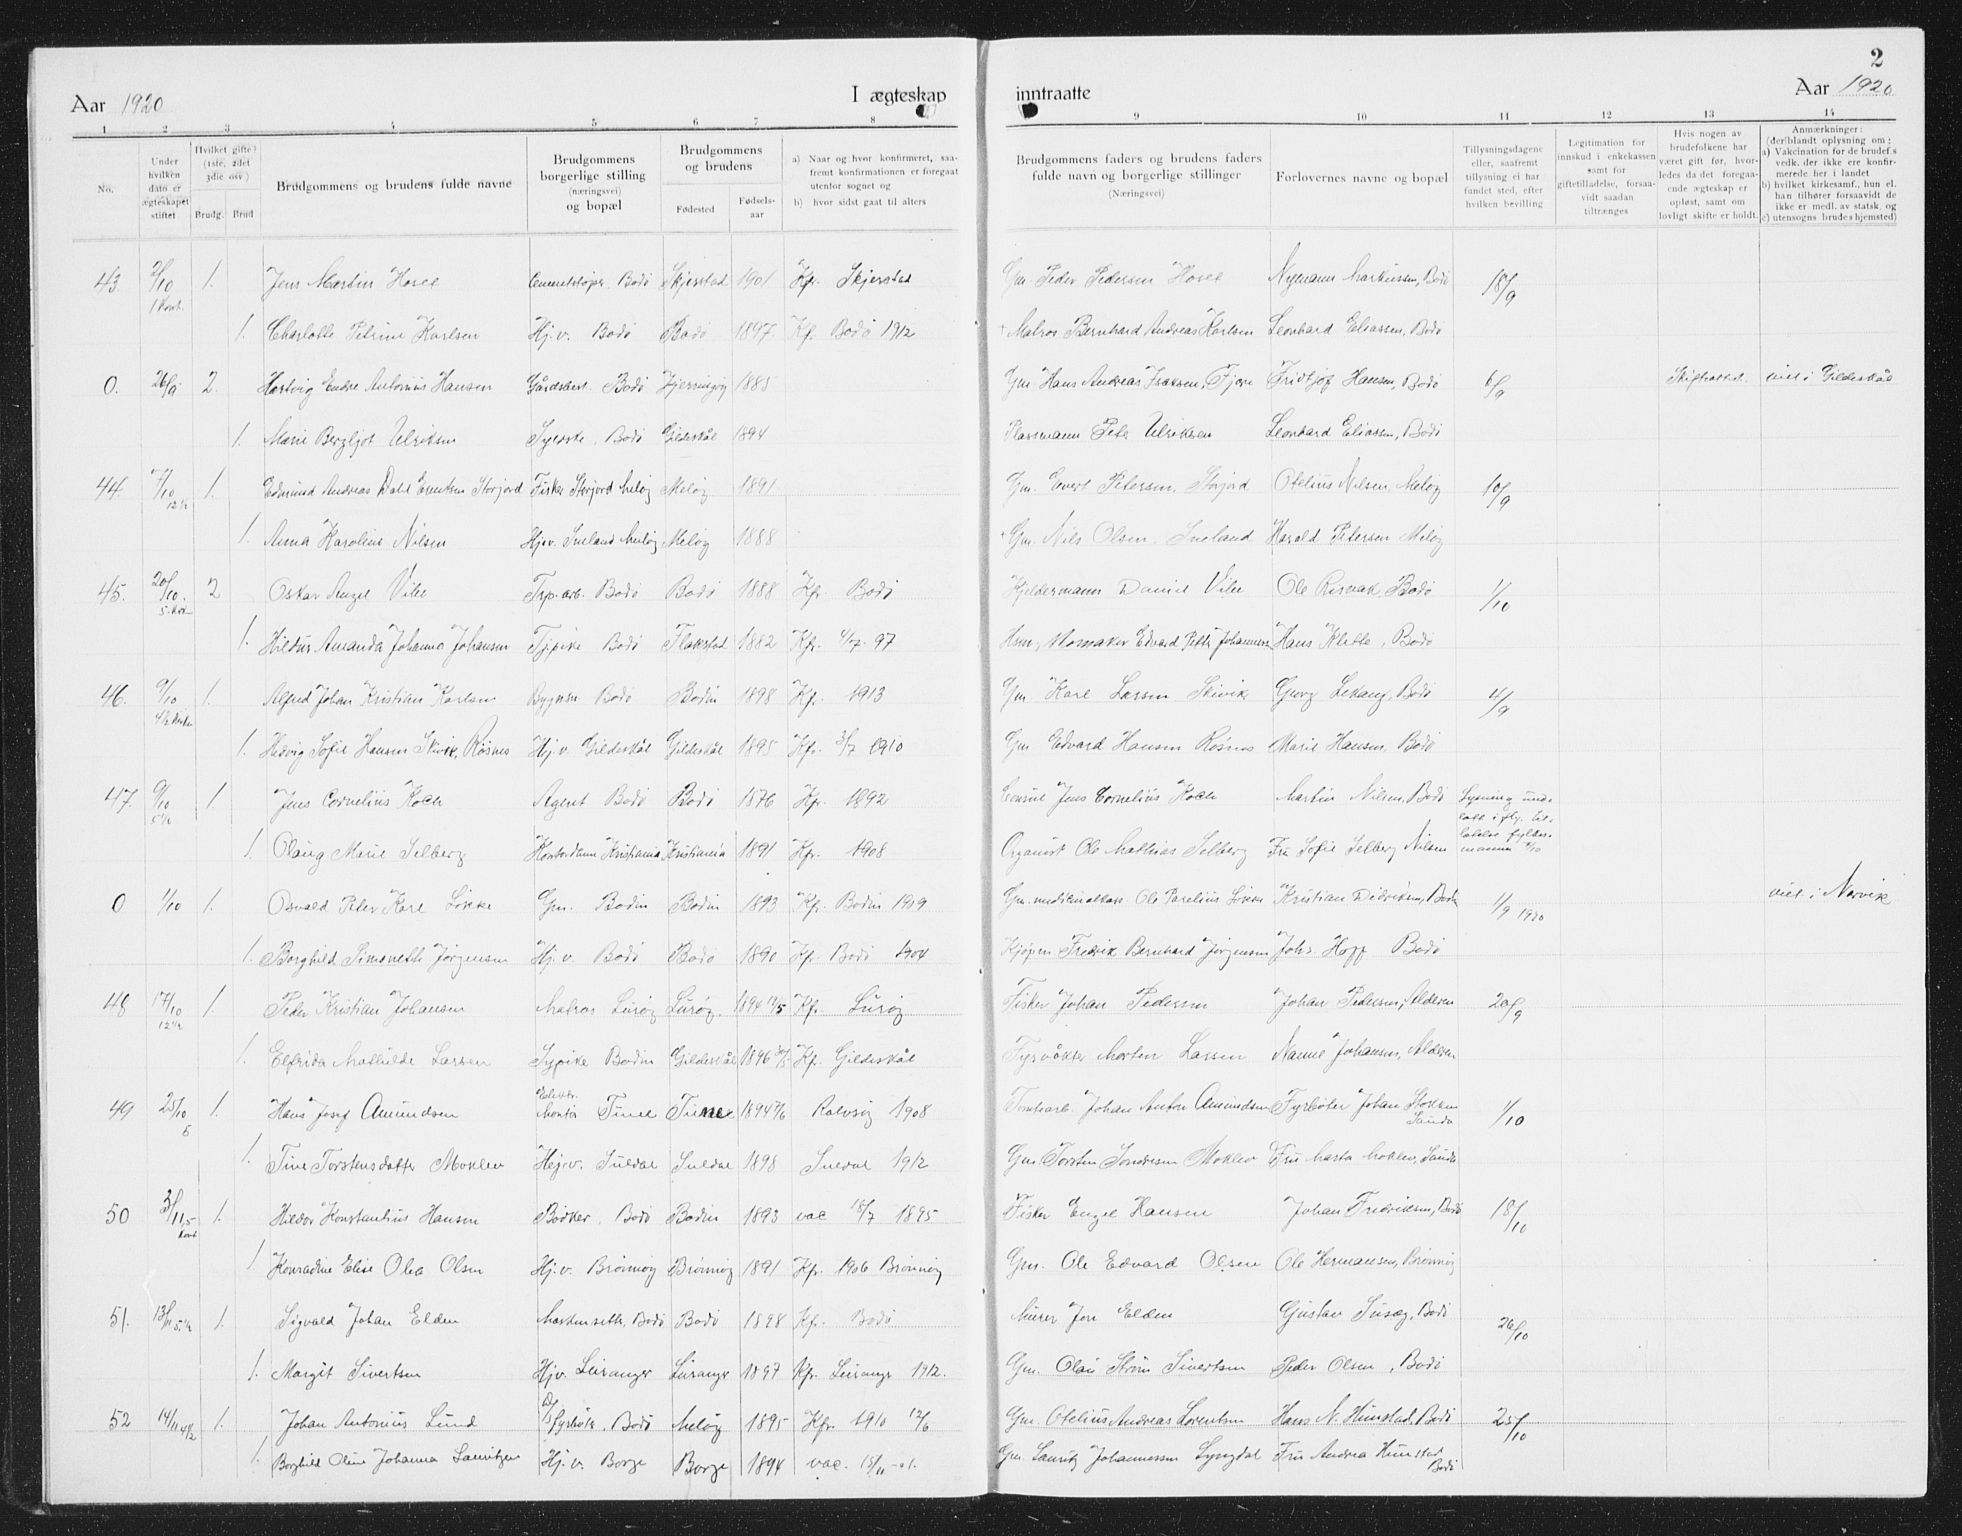 2
Aar 1920 I ægteskap inntraatte Aar 1920
1 2 3 4 5 6 7 8 9 10 11 12 13 14
No.
Under hvilken dato er ægteskapet stiftet
Hvilket gifte? (1ste, 2det 3die osv.)
Brudg. Brud
Brudgommens og brudens fulde navne
Brudgommens borgerlige stilling (næringsvei) og bopæl
Brudgommens og brudens
Fødested Fødsels-aar
a) Naar og hvor konfirmeret, saa-
fremt konfirmationen er foregaat
utenfor sognet og
b) hvor sidst gaat til alters
Brudgommens faders og brudens faders
fulde navn og borgerlige stillinger
(Næringsvei)
Forlovernes navne og bopæl
Tillysningsdagene
eller, saafremt
tillysning ei har
fundet sted, efter
hvilken bevilling
Legitimation for
innskud i enkekassen
samt for
giftetilladelse, forsaa-
vidt saadan
tiltrænges
Hvis nogen av
brudefolkene har
været gift før, hvor-
ledes da det foregaa-
ende ægteskap er
opløst, samt om
lovligt skifte er holdt.
Anmærkninger:
(deriblandt oplysning om:
a) Vakcination for de brudef.s
vedk. der ikke ere konfir-
merede her i landet
b) hvilket kirkesamf., hun el.
han tilhører forsaavidt de
ikke er medl. av statsk. og
c) utensogns brudes hjemsted)
43. 2/10 1. Jens Martin Hovel Bodö Skjerstad 1901 Kfr. Skjerstad Gm. Peder Pedersen Hovel Nymann Markussen, Bodö 18/9
1. Charlotte Petrine Karlsen Hj.v. Bodö Bodö 1897 Kf. Bodö 1912 + Matros Bernhard Andreas Karlsen Leonhard Eliassen, Bodö
0. 26/9 2. Hartvig Endre Antonius Hansen Gårdsbest. Bodö Kjerringöy 1885 Gm. Hans Andreas Isaksen, Fjære Fridtjof Hansen, Bodö 6/9 Skifteattest. viet i Gildeskål
1. Marie Bergljot Ulriksen Syerske, Bodö Gildeskål 1894 Plassmann Peter Ulriksen Leonhard Eliassen, Bodö
44 7/10 12½ 1. Edmund Andreas Dahl Evertsen Storjord Fisker Storjord Melöy Melöy 1891 Gm. Evert Petersen, Storjord Otelius Nilsen, Melöy 10/9
1. Anna Karoline Nilsen Hj.v. Melöy Melöy 1888 + Gm. Nils Olsen. Harald Petersen Melöy
45. 20/10. 2 Oskar Angel Vilu Trp. arb. Bodö Bodö 1888 Kfr. Bodö Kjeldermann Daniel Vilu Ole Risvak, Bodö 1/10
1. Hildur Amanda Johanna Johansen Typike Bodö Flakstad 1882 Kfr. 4/7-97 Hsm, skomaker Edvard Petter Johannesen Hans Klette, Bodö
46. 9/10 1. Alfred Johan Kristian Karlsen Bodö Bodin 1898 Kfr. 1913 Gm. Karl Larsen Skivik Georg Lekang, Bodö 4/9
1. Hedvig Sofie Hansen Skivik, Røsnes Hj.v. Gildeskål Gildeskål 1895 Kfr. 3/7 1910 Gm. Edvard Hansen Røsnes Marie Hansen, Bodö
47. 9/10 5½ 1. Jens Cornelius Koch Agent Bodö Bodö 1876 Kfr. 1892 Konsul Jens Cornelius Koch Martin Nilsen, Bodö Lysning und-
1. Olaug Marie Selberg Kontordame Kristiania Kristiania 1891 Kfr. 1908 Organist Ole Mathias Selberg Fru Sofie Selberg Nilsen
0 1/10 1. Osvald Peter Karl Løkke Gm. Bodin Bodin 1893 Kfr. Bodin 1909 Ole Parelius Løkke Kristian Didriksen, Bodö 1/9 1920 viet i Narvik
1. Borghild Simonette Jörgensen Hj.v. Bodö Bodö 1890 Kfr. Bodö 1904 Kjøpm. Fredrik Bernhard Jörgensen Johs Hopf Bodö
48 17/10 12½ 1. Peder Kristian Johansen Matros Luröy Luröy 1894 Kf. Luröy Fisker Johan Pedersen Johan Pedersen, Alderen 20/9
1. Elfrida Mathilde Larsen Sypike Bodin Gildeskål 1896 Kfr. Gildeskål Fyrvökter Morten Larsen Nanne Johansen, Alderen
49 25/10 5 1. Hans Josef Amundsen Elektr. Montör Tune Tune 1894 Rolvsöy 1908 Tomtearb. Johan Anton Amundsen Fyrböter Johan Stokken 1/10
1. Tine Torstensdatter Moklev Hj.v. Suldal Suldal 1898 Suldal 1912 Gm. Torsten Moklev Fru Marta Moklev,
50 3/11, 5 1. Hildor Konstantius Hansen Bödker, Bodö Bodin 1893 vac 18/7 1895 Fisker Engel Hansen Johan Fredriksen, Bodö 18/10
1. Konradine Elise Olea Olsen Hj.v. Brönnöy Brönnöy 1891 Kfr. 1906 Brönnöy Gm. Ole Edvard Olsen Ole Hermansen, Brönnöy
51. 13/11 5½ 1. Sigvald Johan Elden Bodö Bodö 1898 Kfr. Bodö Murer Jon Elden Gustav Bodö 26/10
1. Margit Sivertsen Hj.v. Leiranger Leiranger 1897 Kfr. Leiranger 1912. Gm. Olai Ström Sivertsen Peder Olsen, Bodö
52 14/11 4½ 1. Johan Antonius Lund Fyrbök. Bodö Melöy 1895 Kfr. 1910 12/6 Gm. Otelius Andreas Lorentsen Hans N. Hunstad, Bodö 25/10
1. Borghild Oline Johanna Lauritzen Hj.v. Borge Borge 1894 vac. 15/11-01. Gm. Lauritz Johannessen Lyngdal Fru Andrea Hunstad Bodö